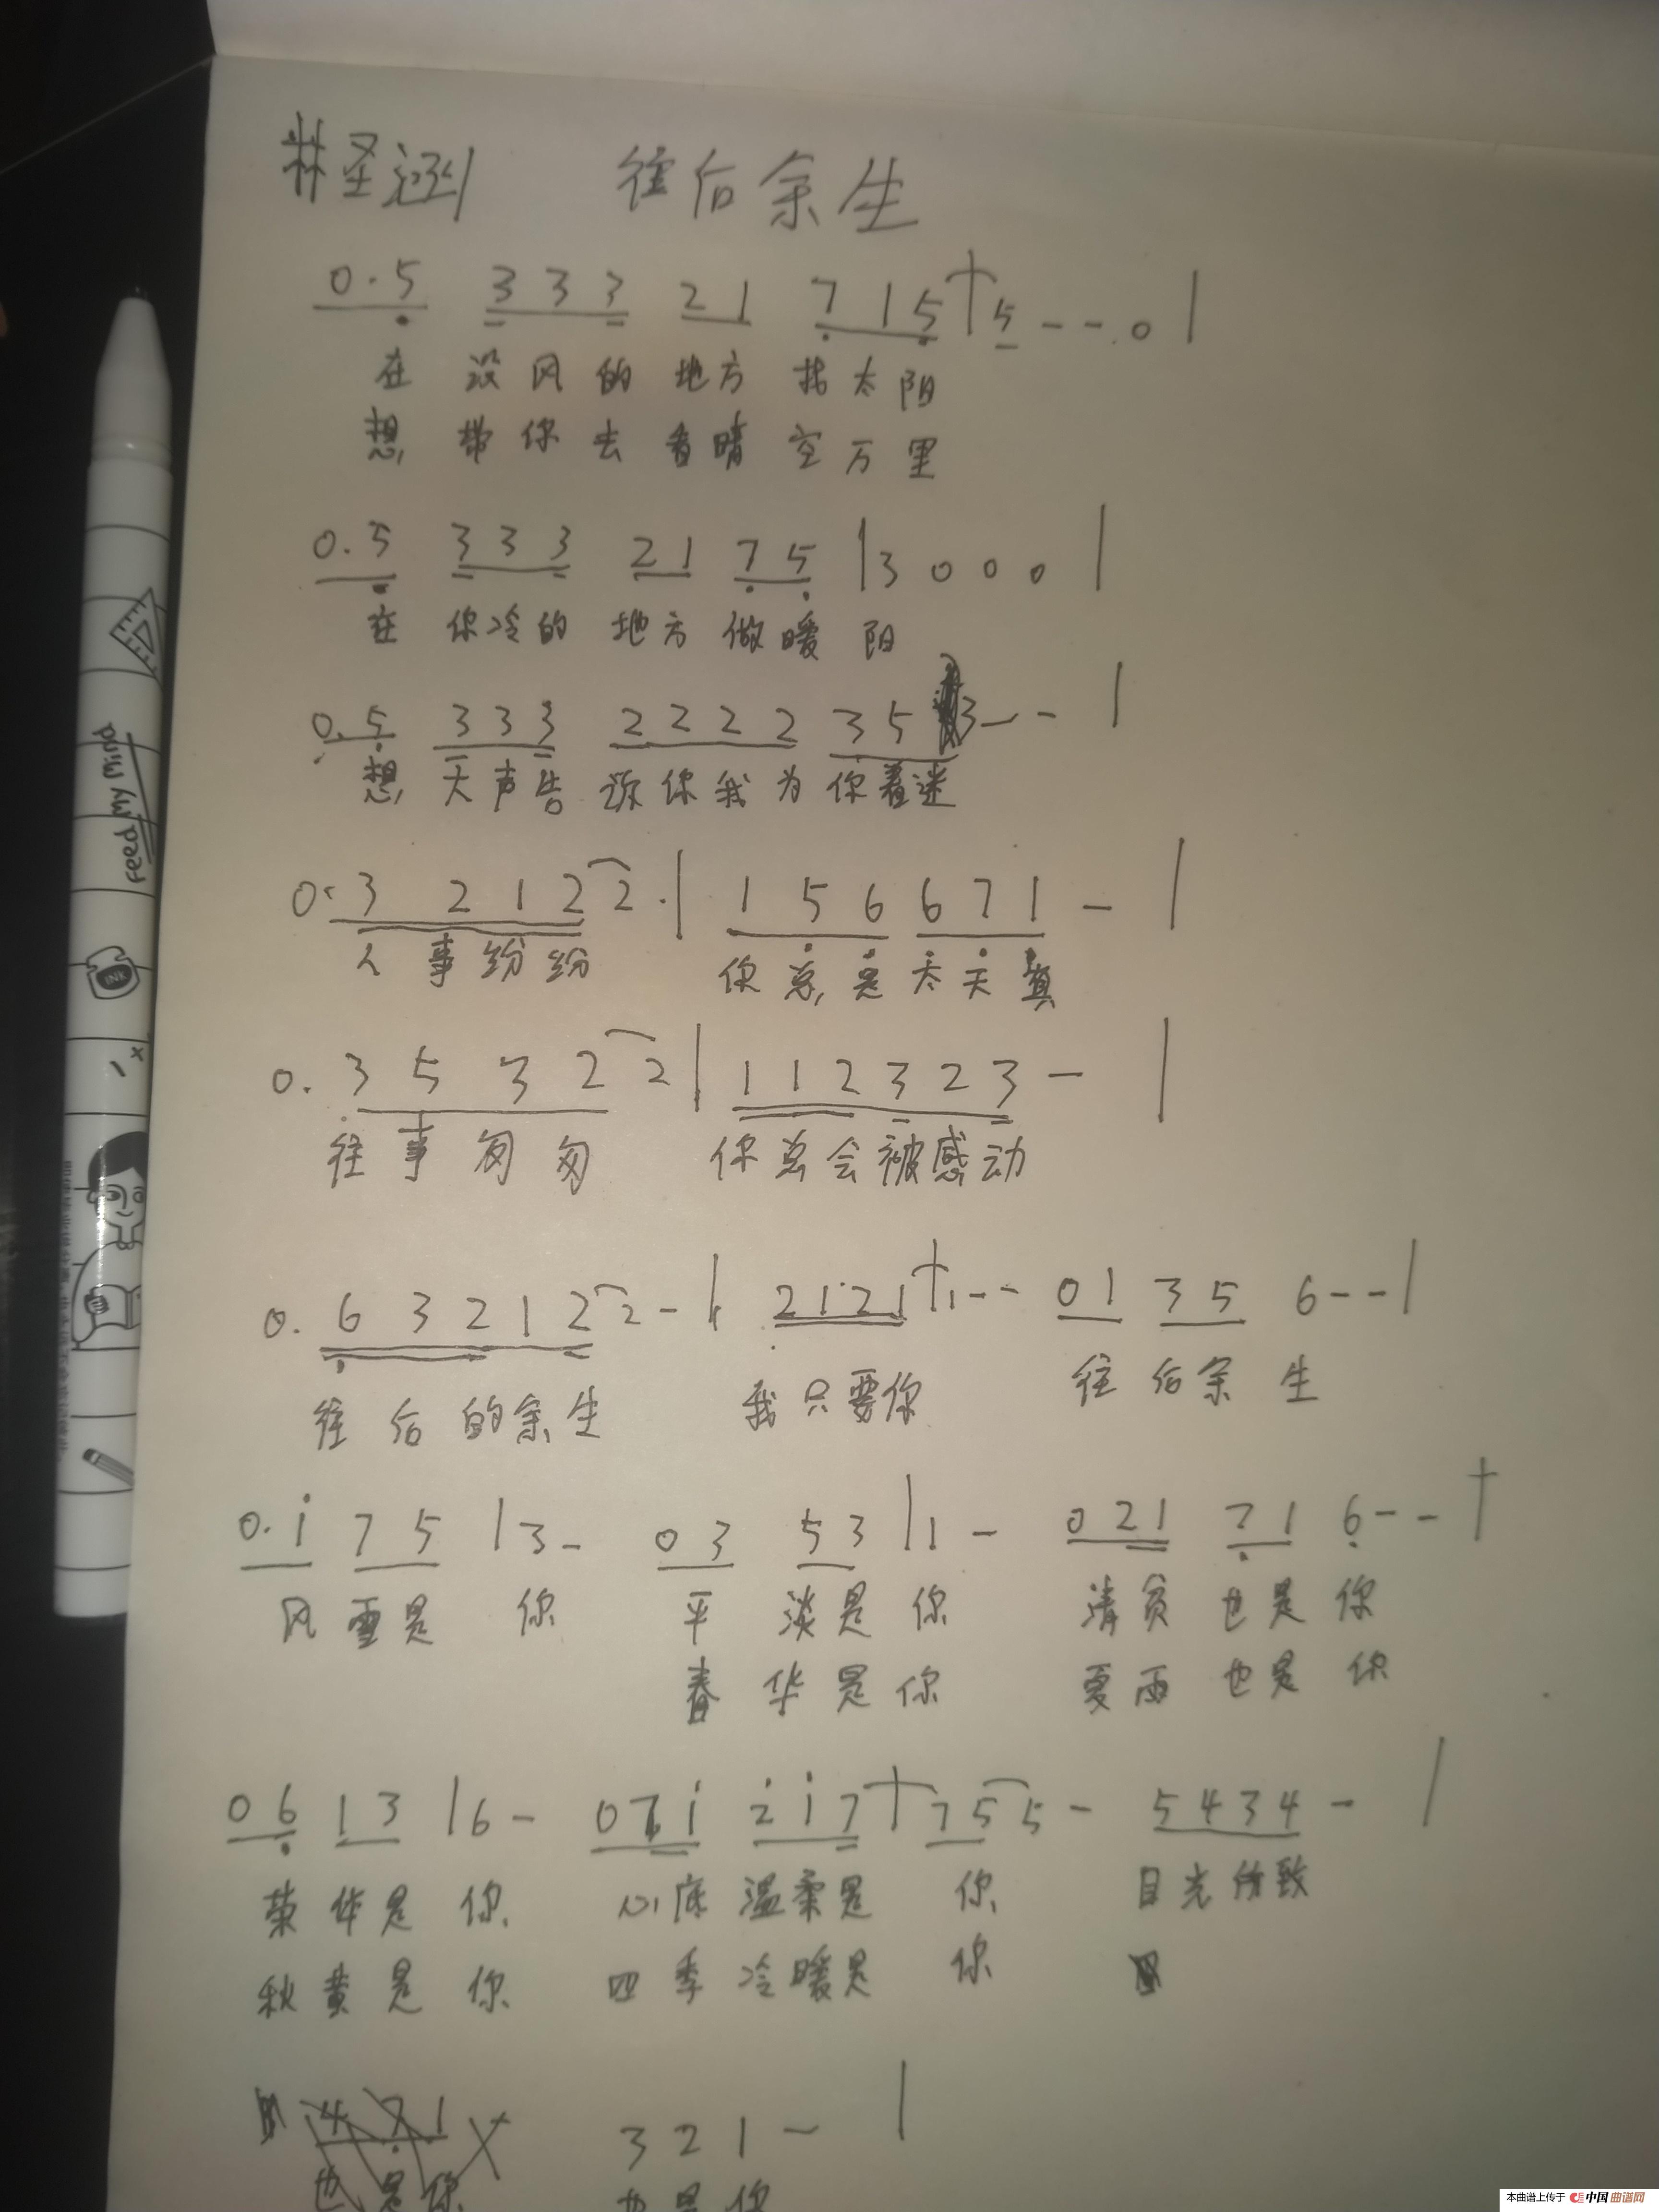 林圣涵 往后余生
0.5 333 21 715 | 5--.0 |
在 没风的 地方 找太阳
想 带你去 看晴 空万里
0.5 333 21 75 | 3 0 0 0 |
在 你冷的 地方 做暖 阳
0.5 333 2222 35 3-- |
想 大声告 诉你我为 你着迷
0.3 2 1 2 2. | 1 5 6 6 7 1 - |
人事纷纷 你总是太天真
0.3 5 3 2 2 | 1 1 2 3 2 3 - |
往事匆匆 你总会被感动
0.6 3 2 1 2 2 - | 2121 | 1-- 01 35 6-- |
往后的余生 我只要你 往 后余 生
0.i 75 | 3- 03 53 | 1- 021 71 6-- |
风 雪是 你 平 淡是 你 清贫 也是 你
春 华是 你 夏雨 也是 你
06 13 | 6- 07i 2i7 | 755 - 5434 - |
荣 华是 你 心底 温柔是 你 目光所致
秋 黄是 你 四季 冷暖是 你
471 321- |
也是你 也是你
feed my mind
INK
本曲谱上传于 中国曲谱网